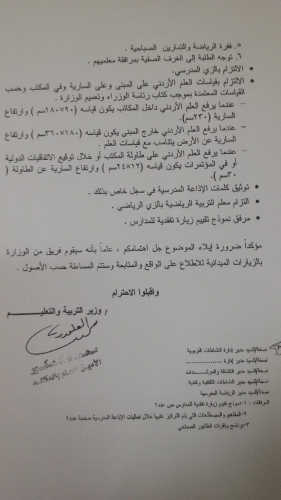 ٥. فقرة الرياضة والتمارين الصباحية .
٦. توجه الطلبة إلى الغرف الصفية بمرافقة معلميهم .
• الإلتزام بالزي المدرسي.
• الالتزام بقياسات العلم الأردني على المبنى وعلى السارية وفي المكتب وحسب
القياسات المعتمدة بموجب كتاب رئاسة الوزراء وتعميم الوزارة .
– عندما يرفع العلم الأردني داخل المكاتب يكون قياسه (٩٠×١٨٠سم ) وارتفاع
السارية (٢٣٠سم).
– عندما يرفع العلم الأردني خارج المبنى يكون قياسه (١٨٠×٣٦٠سم ) وارتفاع
السارية عن الأرض يتناسب مع قياسات العلم .
– عندما يرفع العلم الأردني على طاولة المكتب أو خلال توقيع الاتفاقيات الدولية
أو في المؤتمرات يكون قياسه (١٢×٢٤سم ) وارتفاع السارية عن الطاولة (
٣٠سم ).
• توثيق كلمات الإذاعة المدرسية في سجل خاص بذلك .
• التزام معلم التربية الرياضية بالزي الرياضي .
• مرفق نموذج تقييم زيارة تفقدية للمدارس .
مؤكداً ضرورة إيلاء الموضوع جل اهتمامكم ، علماً بأنه سيقوم فريق من الوزارة
بالزيارات الميدانية للاطلاع على الواقع والمتابعة وستتم المساءلة حسب الأصول .
واقبلوا الاحترام
وزير التربية والتعليم
نسخة/لسيد مدير إدارة النشاطات التربوية
نسخة/لسيد مدير إدارة ..................
نسخة/لسيد مدير الكشافة والمرشدات
نسخة/لسيد مدير النشاطات الثقافية والفنية
نسخة/لسيد مدير الرياضة المدرسية
المرفقات : ١-نموذج تقييم زيارة تفقدية للمدارس ص عدد٢
٢-المفاهيم والمصطلحات التي يتم التركيز عليها خلال فعاليات الإذاعة المدرسية صفحة عدد٢
٣-برنامج وفقرات الطابور الصباحي